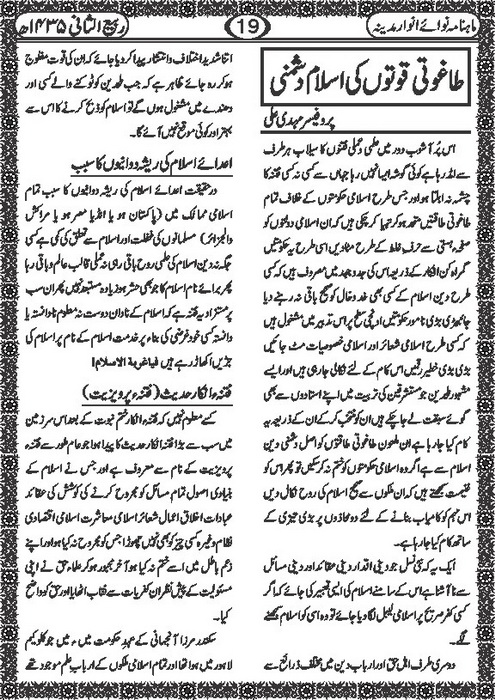 ماہنامہ نوائے انوار مدینہ
19
ربیع الثانی ۱۴۳۵ھ
طاغوتی قوتوں کی اسلام دشمنی
پروفیسر مہدی علی
اس پُر آشوب دور میں علمی و عملی فتنوں کا سیلاب ہر طرف
سے اُمڈ رہا ہے کوئی گوشہ ایسا نہیں رہا جہاں سے کسی نہ کسی فتنہ کا
چشمہ نہ ابلتا ہو اور جس طرح اسلامی حکومتوں کے خلاف تمام
طاغوتی طاقتیں متحد ہو کر تہیا کر چکی ہیں کہ ان اسلامی دولتوں کو
صفحہ ہستی سے حرفِ غلط کے طرح مٹادیں اسی طرح یہ حکومتیں
گمراہ کن افکار کے ذریعہ اس کی جدوجہد میں مصروف ہیں کہ کسی
طرح دین اسلام کے کسی بھی خدوخال کو صحیح باقی نہ رہنے دیا
جائے بڑی بڑی نامور حکومتیں اونچی سطح پر اس تدبیر میں مشغول ہیں
کہ کسی طرح اسلامی شعائر اور اسلامی خصوصیات مٹ جائیں
بڑی بڑی خطیر رقمیں اس کام کے لئے نکالی جا رہی ہیں اور ایسے
مشہور ملحدین جو مستشرقین کی تربیت میں اپنے استادوں سے بھی
گوئے سبقت لے جاچکے ہیں ان کو منتخب کر کے ان کے ذریعہ یہ
کام کیا جا رہا ہے ان ملعون طاغوتی طاقتوں کو اصل دشمنی دین
اسلام سے ہے اگر وہ اسلامی حکومتوں کو ختم نہ کر سکیں تو پھر اس کو
غنیمت سمجھتے ہیں کہ ان ملکوں سے صحیح اسلام کی روح نکال دیں
اس مہم کو کامیاب بنانے کے لئے دو محاذوں پر بڑی تیزی کے
ساتھ کام کیا جا رہا ہے۔
ایک یہ کہ نئی نسل جو دینی اقدار دینی عقائد اور دینی مسائل
سے نا آشنا ہے اس کے سامنے اسلام کی ایسی تعبیر کی جائے کہ اگر
کسی کفر صریح پر اسلامی لیبل لگا دیا جائے تو وہ اسی کو اسلام سمجھنے
لگے۔
دوسری طرف اہل حق اور ارباب دین میں مختلف ذرائع سے
اتنا شدید اختلاف و انتشار پیدا کر دیا جائے کہ ان کی قوت مفلوج
ہو کر رہ جائے ظاہر ہے کہ جب ملحدین کو ٹوکنے والے کسی اور
دھندے میں مشغول ہوں گے تو اسلام کو ذبح کرنے کا اس سے
بہتر اور کوئی موقع نہیں آئے گا۔
اعدائے اسلام کی ریشہ دوانیوں کا سبب
درحقیقت اعدائے اسلام کی ریشہ دوانیوں کا سبب تمام
اسلامی ممالک میں (پاکستان ہو یا انڈیا مصر ہو یا مراکش
والجزائر) مسلمانوں کی غفلت اور اسلام سے تعلق کی کمی ہے کسی
جگہ نہ دین اسلام کی علمی روح باقی رہی نہ عملی قالب عالم و باقی رہا
پھر برائے نام اسلام کا جو بھی حشر ہو زیادہ مستبعد نہیں پھر ان سب
پر مستزاد یہ فتنہ ہے کہ اسلام کے نادان دوست نہ معلوم نادانستہ یا
دانستہ کسی خود غرضی کی بناء پر خدمت اسلام کے نام پر اسلام کی
جڑیں اکھاڑ رہے ہیں فیاضیعة الاسلام!
فتنہء انکار حدیث (فتنہء پرویزیت)
کسے معلوم نہیں کہ فتنہء انکار ختم نبوت کے بعد اس سرزمین
میں سب سے بڑا فتنہ انکار حدیث کا پیدا ہوا جو عام طور سے فتنہء
پرویزیت کے نام سے معروف ہے اور جس نے اسلام کے
بنیادی اصول تمام مسائل کو مجروح کرنے کی کوشش کی عقائد
عبادات اخلاق اعمال شعائر اسلامی معاشرت اسلامی اقتصادی
نظام وغیرہ کسی چیز کو بھی نہیں چھوڑا جس کو مجروح نہ کیا ہو اور اپنے
زعم باطل میں اسے ختم نہ کیا ہو آخر مجبور ہو کر علماء حق نے اپنی
مسئولیت کے پیش نظر ان کفریات سے نقاب اٹھایا اور حق کو واضح
کیا۔
سکندر مرزا آنجہانی کے عہد حکومت میں ء میں جو کلوکیم
لاہور میں ہوا تھا اور تمام اسلامی ملکوں کے ارباب علم موجود تھے